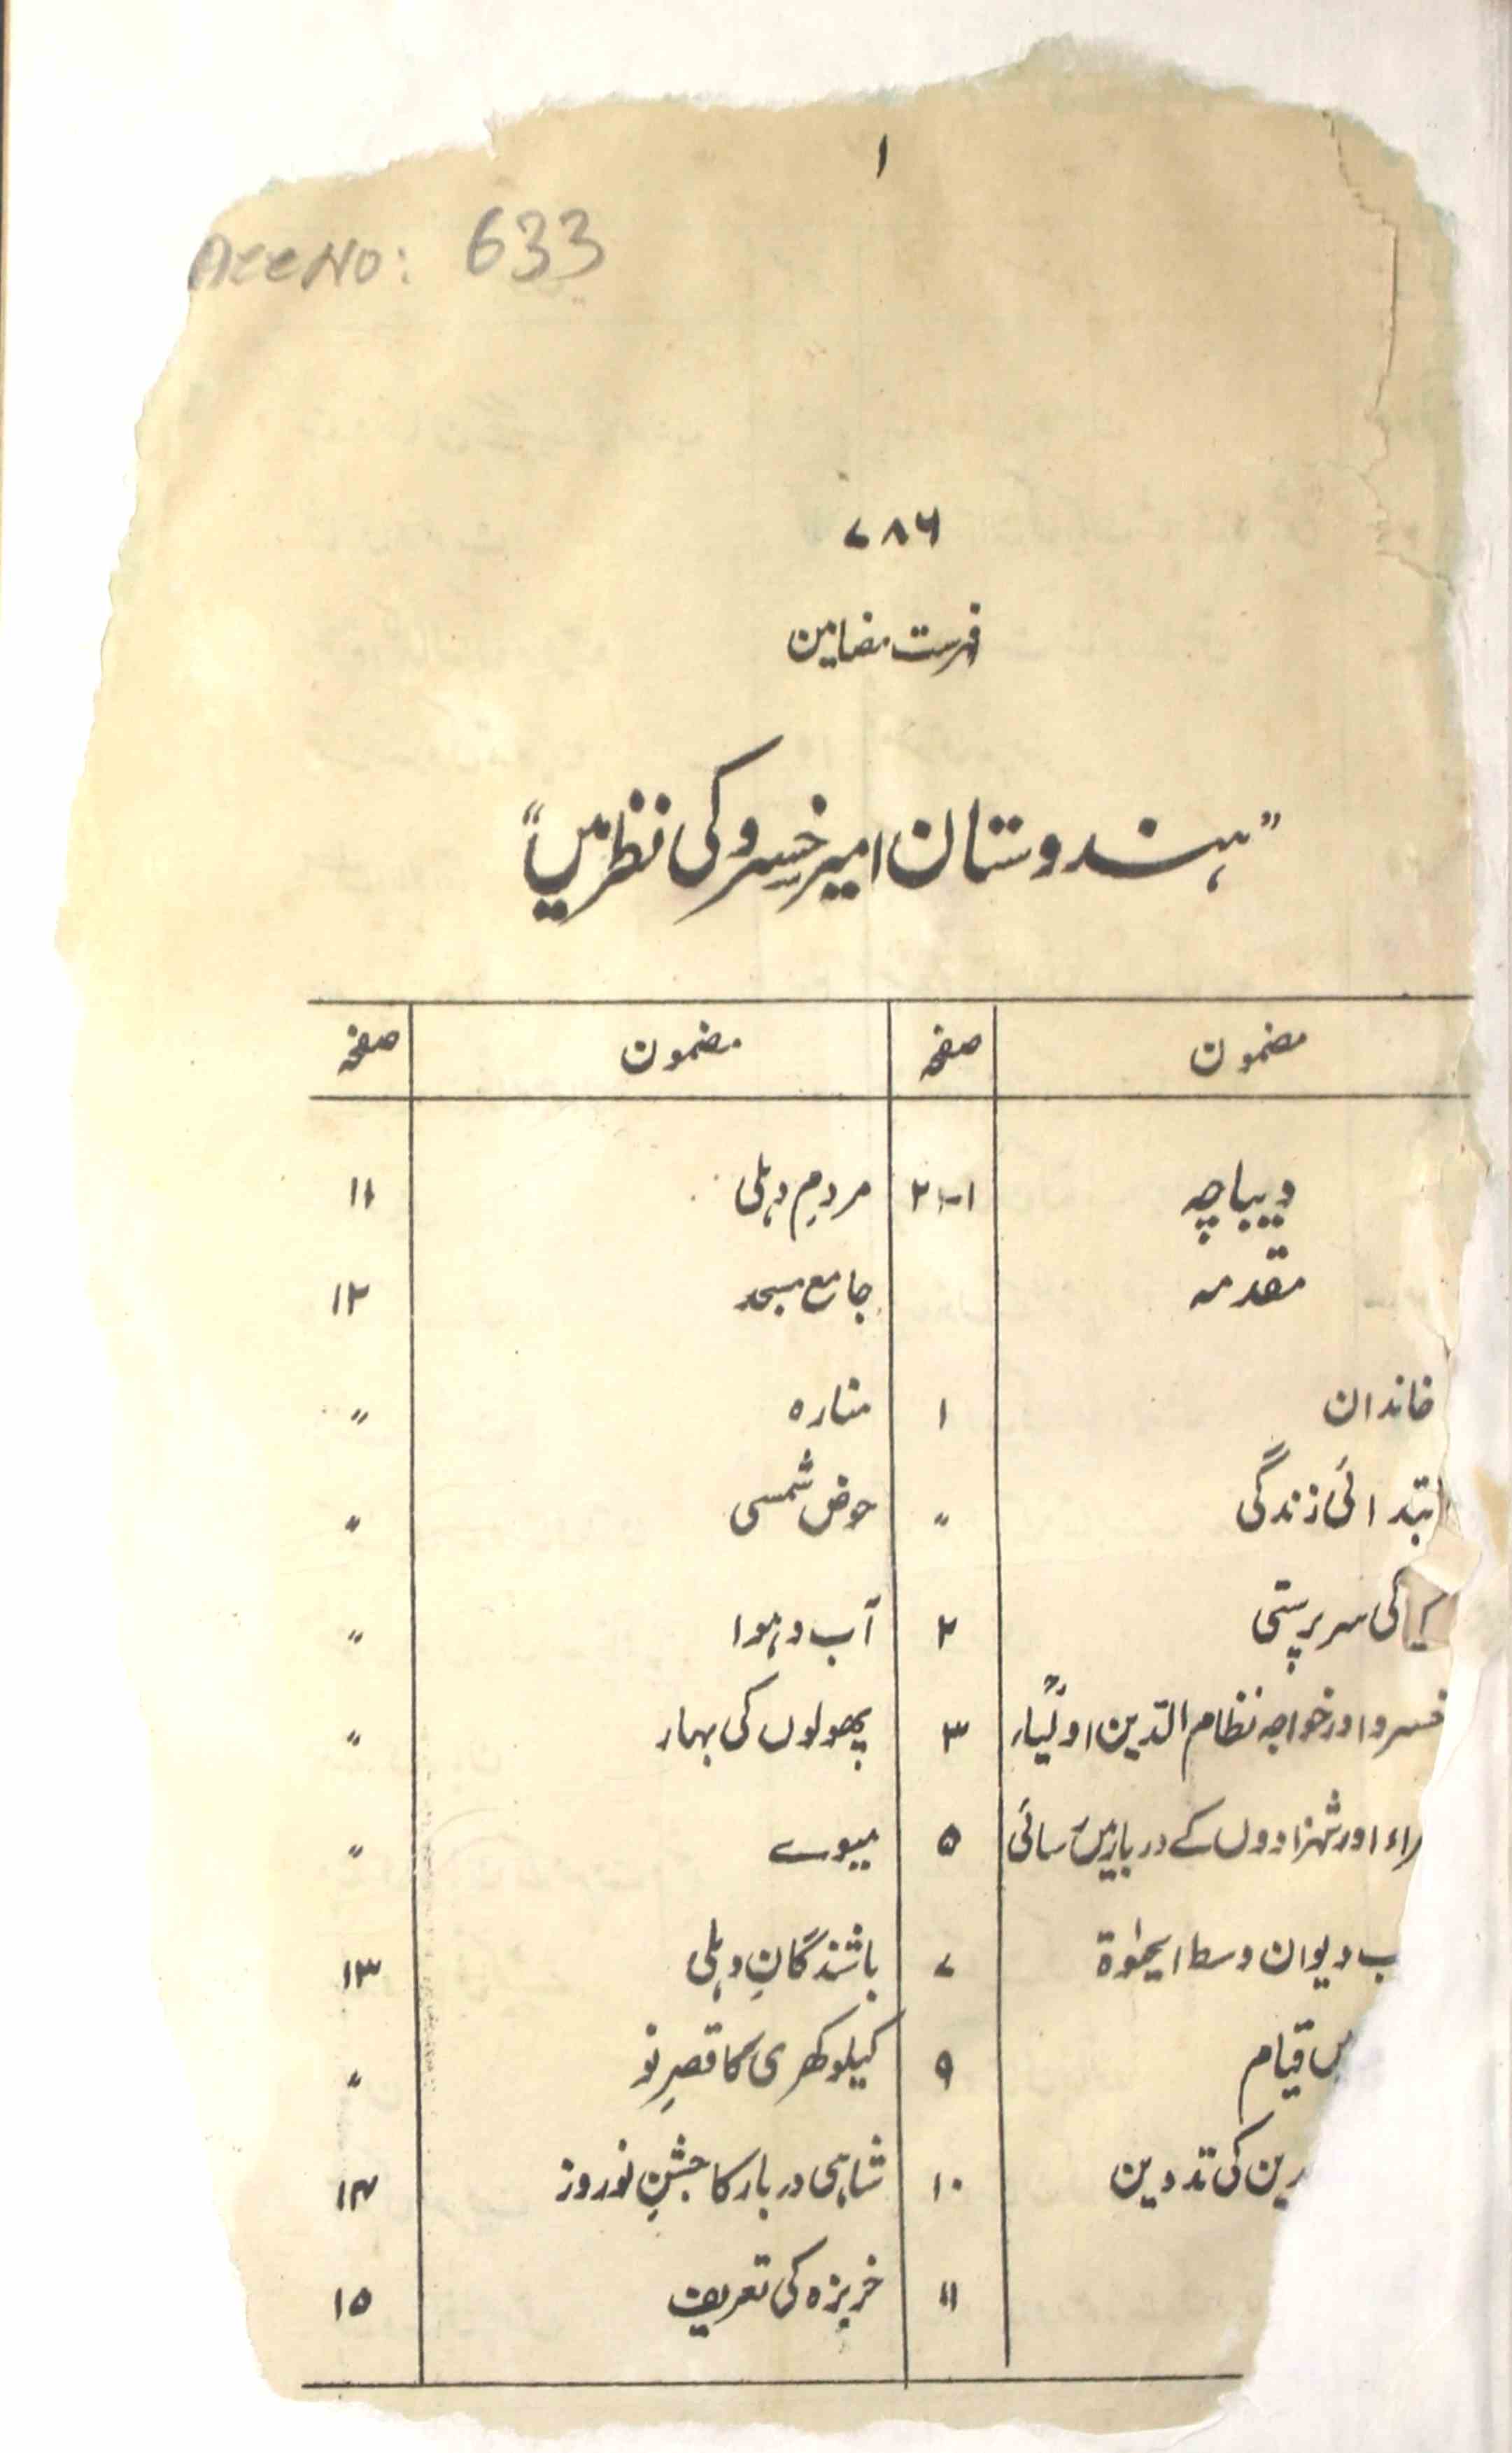 ۱
Acc No: 633
۷۸۶
فہرست مضامین
"ہندوستان امیر خسرو کی نظر میں"
مضمون صفحہ مضمون صفحہ
دیباچہ ۱-۲ مردم دہلی ۱۱
مقدمہ جامع مسجد ۱۲
خاندان ۱ منارہ "
ابتدائی زندگی " حوض شمسی "
کی سرپرستی ۲ آب و ہوا "
خسرو اور خواجہ نظام الدین اولیاء ۳ پھولوں کی بہار "
راء اور شہزادوں کے دربار میں رسائی ۵ میوے "
ب دیوان وسط الحیٰوۃ ۷ باشندگانِ دہلی ۱۳
قیام ۹ کیلوکھری کا قصرِ نو "
کی تدوین ۱۰ شاہی دربار کا جشنِ نوروز ۱۴
۱۱ خربزہ کی تعریف ۱۵